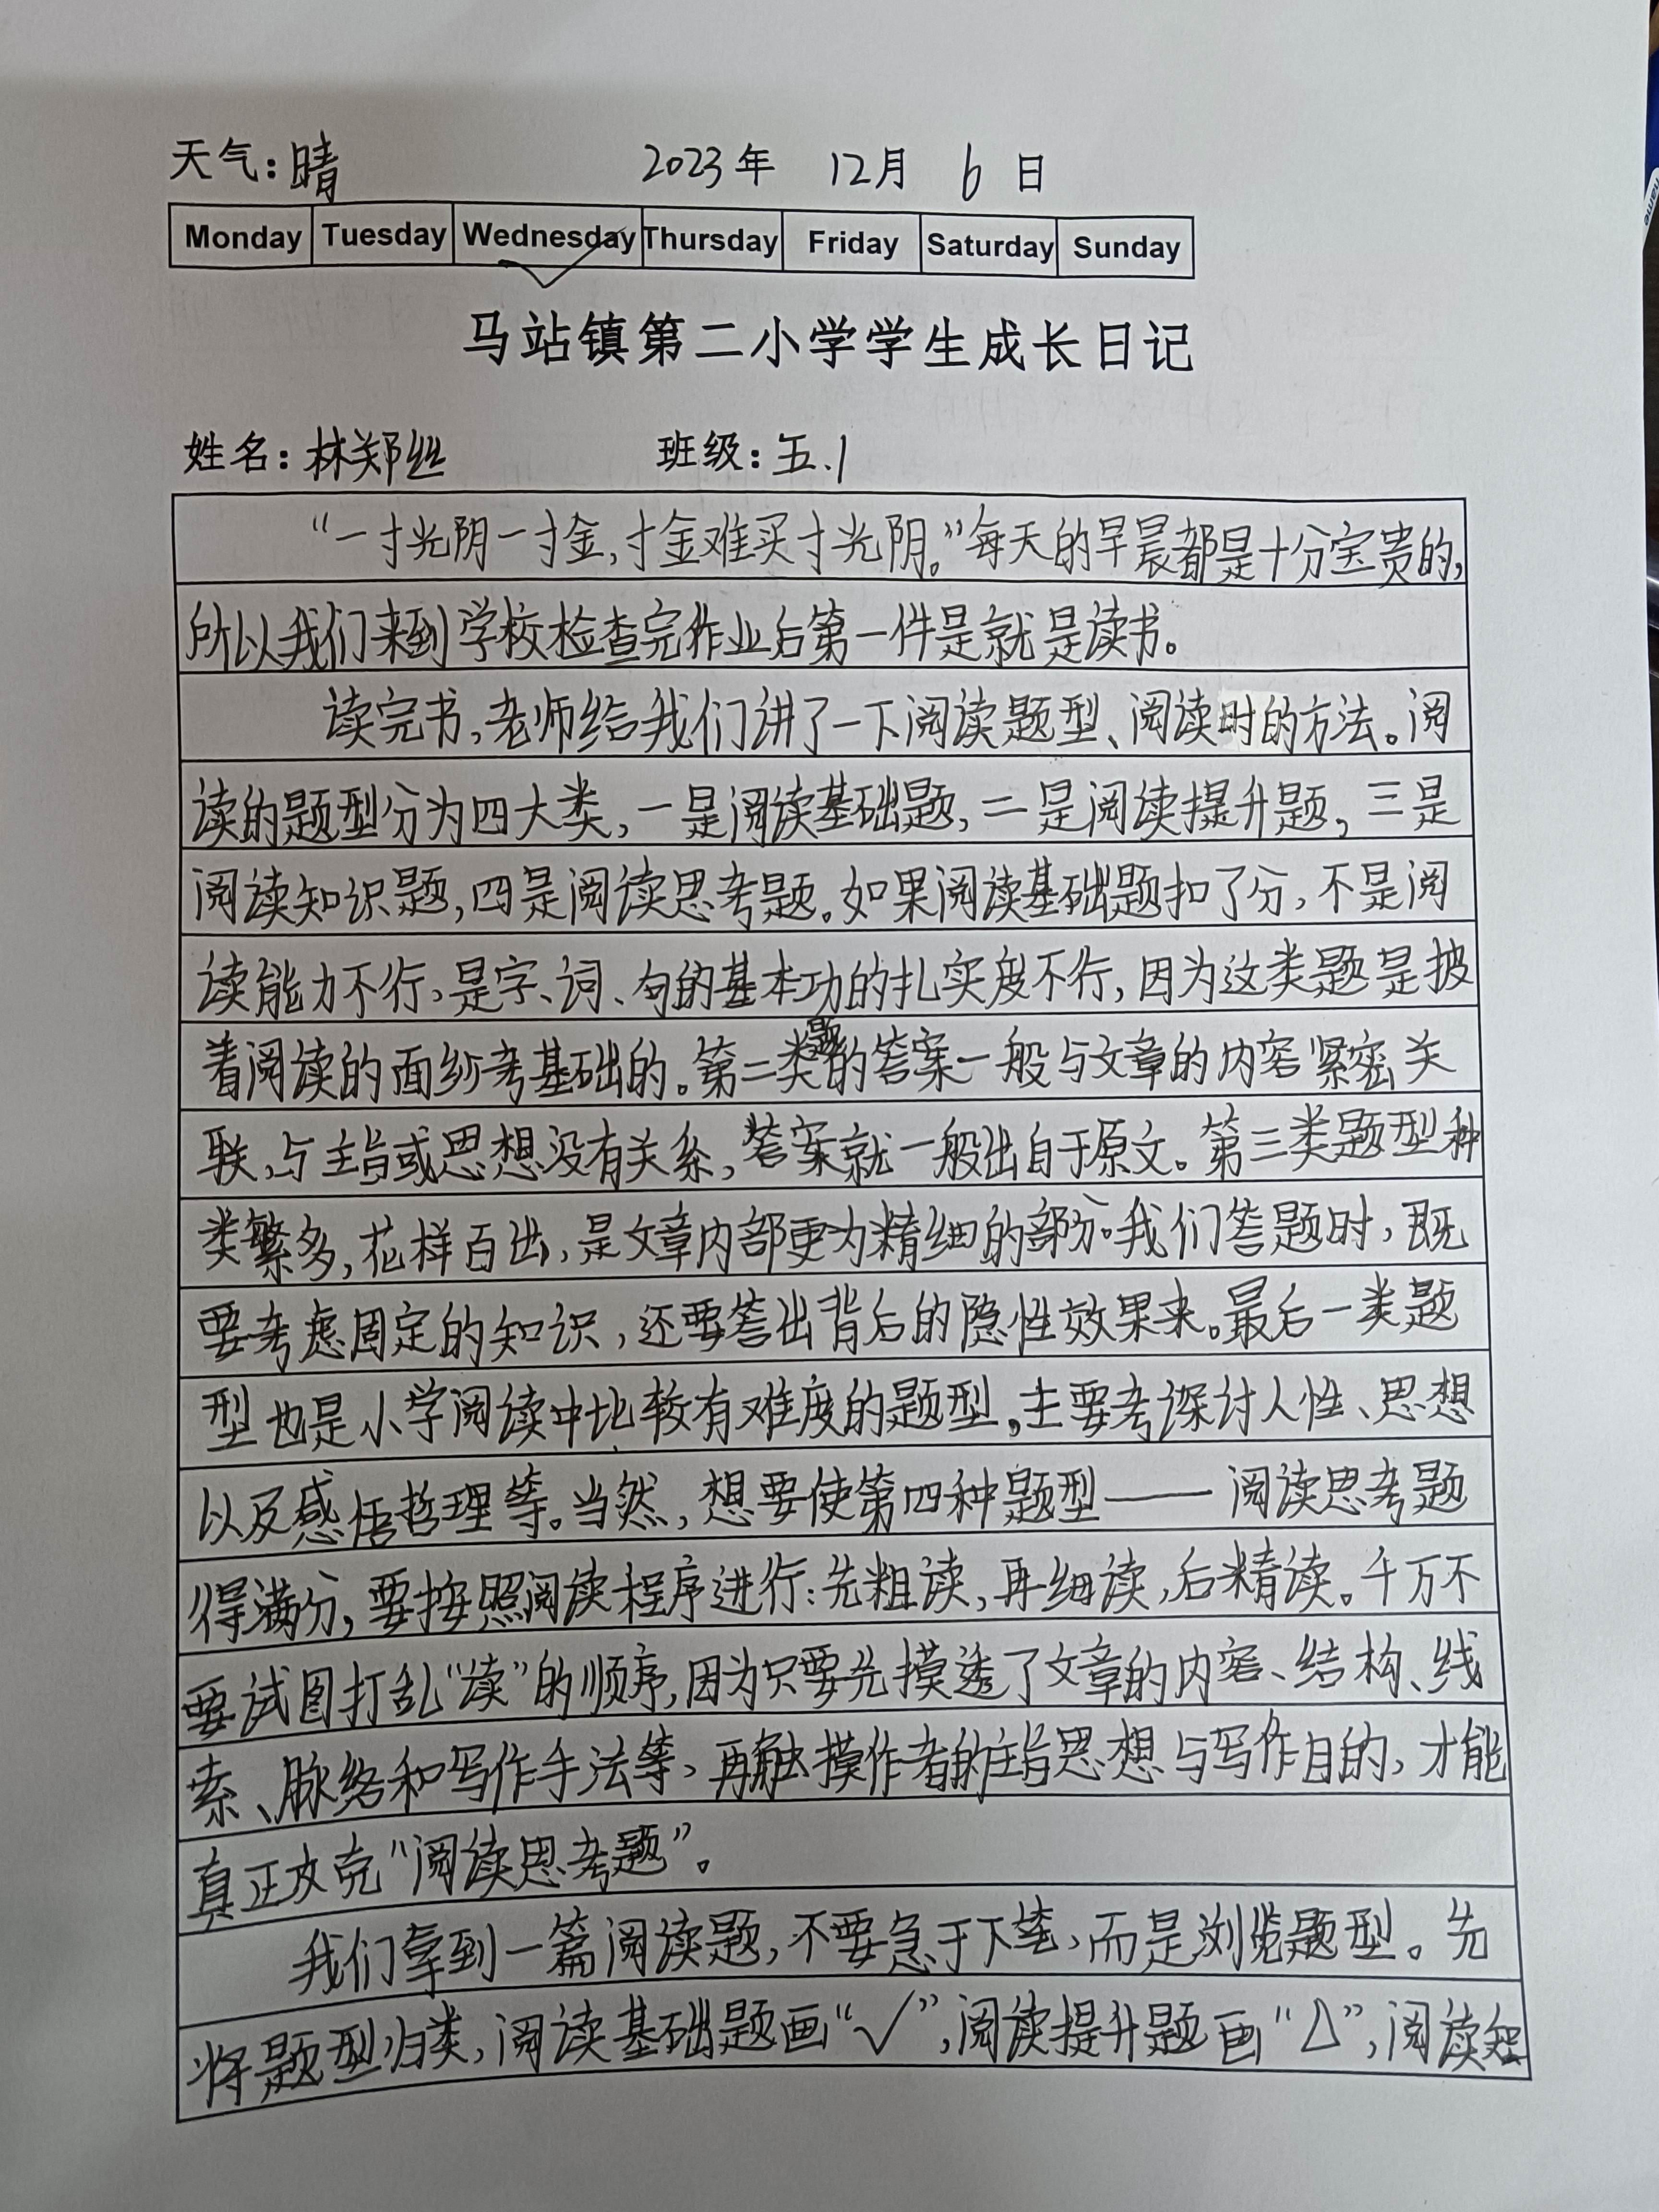 天气：晴 2023年 12月 6日
Monday Tuesday Wednesday Thursday Friday Saturday Sunday
马站镇第二小学学生成长日记
姓名：林郑丝 班级：五.1
“一寸光阴一寸金，寸金难买寸光阴。”每天的早晨都是十分宝贵的，
所以我们来到学校检查完作业后第一件是就是读书。
读完书，老师给我们讲了一下阅读题型、阅读时的方法。阅
读的题型分为四大类，一是阅读基础题，二是阅读提升题，三是
阅读知识题，四是阅读思考题。如果阅读基础题扣了分，不是阅
读能力不行，是字、词、句的基本功的扎实度不行，因为这类题是披
着阅读的面纱考基础的。第二类题的答案一般与文章的内容紧密关
联，与主旨或思想没有关系，答案就一般出自于原文。第三类题型种
类繁多，花样百出，是文章内部更为精细的部分。我们答题时，既
要考虑固定的知识，还要答出背后的隐性效果来。最后一类题
型也是小学阅读中比较有难度的题型。主要考深讨人性、思想
以及感悟哲理等。当然，想要使第四种题型——阅读思考题
得满分，要按照阅读程序进行：先粗读，再细读，后精读。千万不
要试图打乱“读”的顺序，因为只要先摸透了文章的内容、结构、线
索、脉络和写作手法等，再触摸作者的主旨思想与写作目的，才能
真正攻克“阅读思考题”。
我们拿到一篇阅读题，不要急于下笔，而是浏览题型。先
将题型归类，阅读基础题画“√”，阅读提升题画“△”，阅读知